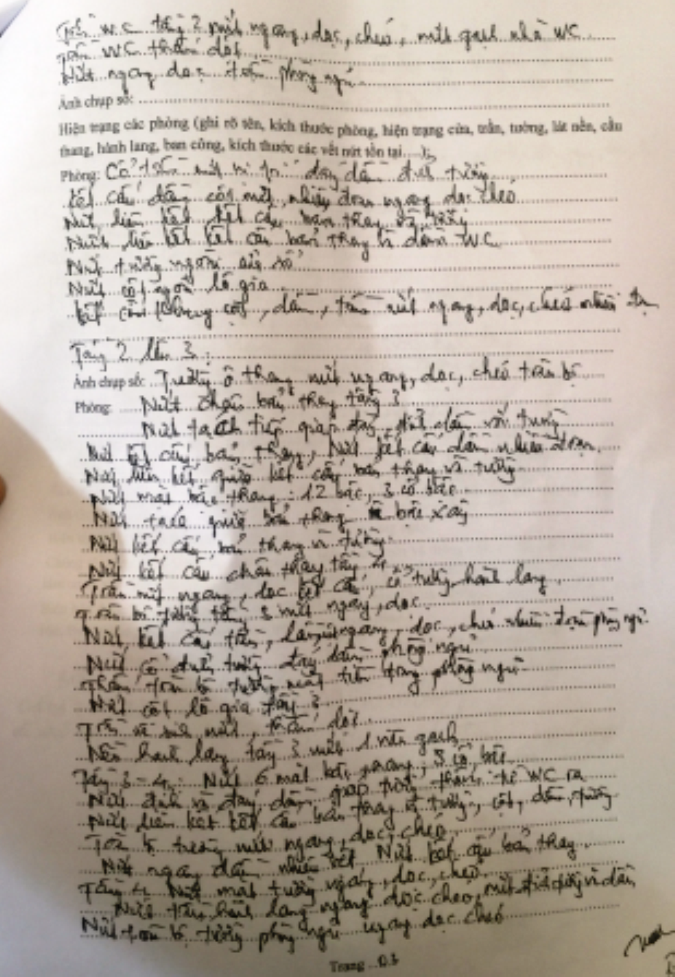 Trần WC tầng 2 nứt ngang, dọc, chéo, nứt gạch nhà WC
Trần WC thấm dột
Nứt ngang dọc trần phòng ngủ
Ảnh chụp số:
Hiện trạng các phòng (ghi rõ tên, kích thước phòng, hiện trạng cửa, trần, tường, lát nền, cầu
thang, hành lang, ban công, kích thước các vết nứt tồn tại....):
Phòng: Cổ trần nứt vị trí đáy dầm đỉnh tường
Kết cấu dầm cột nứt, nhiều đoạn ngang dọc chéo
Nứt liên kết kết cấu bản thang và tường
Nứt liên kết kết cấu bản thang và dầm WC
Nứt tường ngoài cửa sổ
Nứt cột ngoài lô gia
Kết cấu khung cột, dầm, trần nứt ngang, dọc, chéo nhiều
Tầng 2 lên 3:
Ảnh chụp số: Tường ô thang nứt ngang, dọc, chéo toàn bộ
Phòng: Nứt chân bản thang tầng 3
Nứt tách tiếp giáp đáy, đỉnh dầm với tường
Nứt kết cấu bản thang, Nứt kết cấu dầm nhiều đoạn
Nứt liên kết giữa kết cấu bản thang và tường
Nứt mặt bậc thang: 12 bậc, 3 cổ bậc
Nứt tách giữa bản thang bậc xây
Nứt kết cấu bản thang và tường
Nứt kết cấu chân thang tầng 4
Trần nứt ngang, dọc kết cấu, cổ tường hành lang
Toàn bộ tường tầng 3 nứt ngang, dọc
Nứt kết cấu trần, ngang, dọc, chéo nhiều đoạn phòng ngủ
Nứt cổ đỉnh tường đáy dầm phòng ngủ
Thấm toàn bộ tường mặt tiền trong phòng ngủ
Nứt cột lô gia tầng 3
Trần vệ sinh nứt, thấm dột
Nền hành lang tầng 3 nứt 1 viên gạch
Tầng 3-4: Nứt 6 mặt bậc thang, 3 cổ bậc
Nứt đỉnh và đáy dầm, giáp tường từ WC ra
Nứt liên kết kết cấu bản thang và tường, cột, dầm, tường
Toàn bộ tường nứt ngang, dọc, chéo
Nứt ngang dầm nhiều vết. Nứt kết cấu bản thang
Tầng 4 Nứt mặt tường ngang, dọc, chéo
Nứt trần hành lang ngang dọc chéo, nứt đỉnh tường và dầm
Nứt toàn bộ tường phòng ngủ ngang dọc chéo
Trang 03